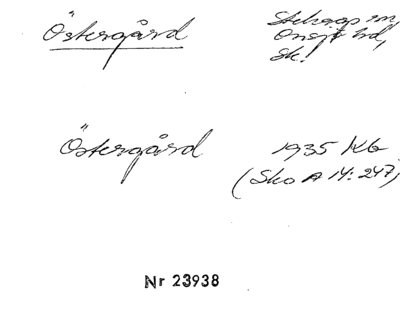 Östergård
Stehag sn,
Onsjö hd,
Sk.
Östergård
1935 Kb
(Sko A 14: 247)
Nr 23938